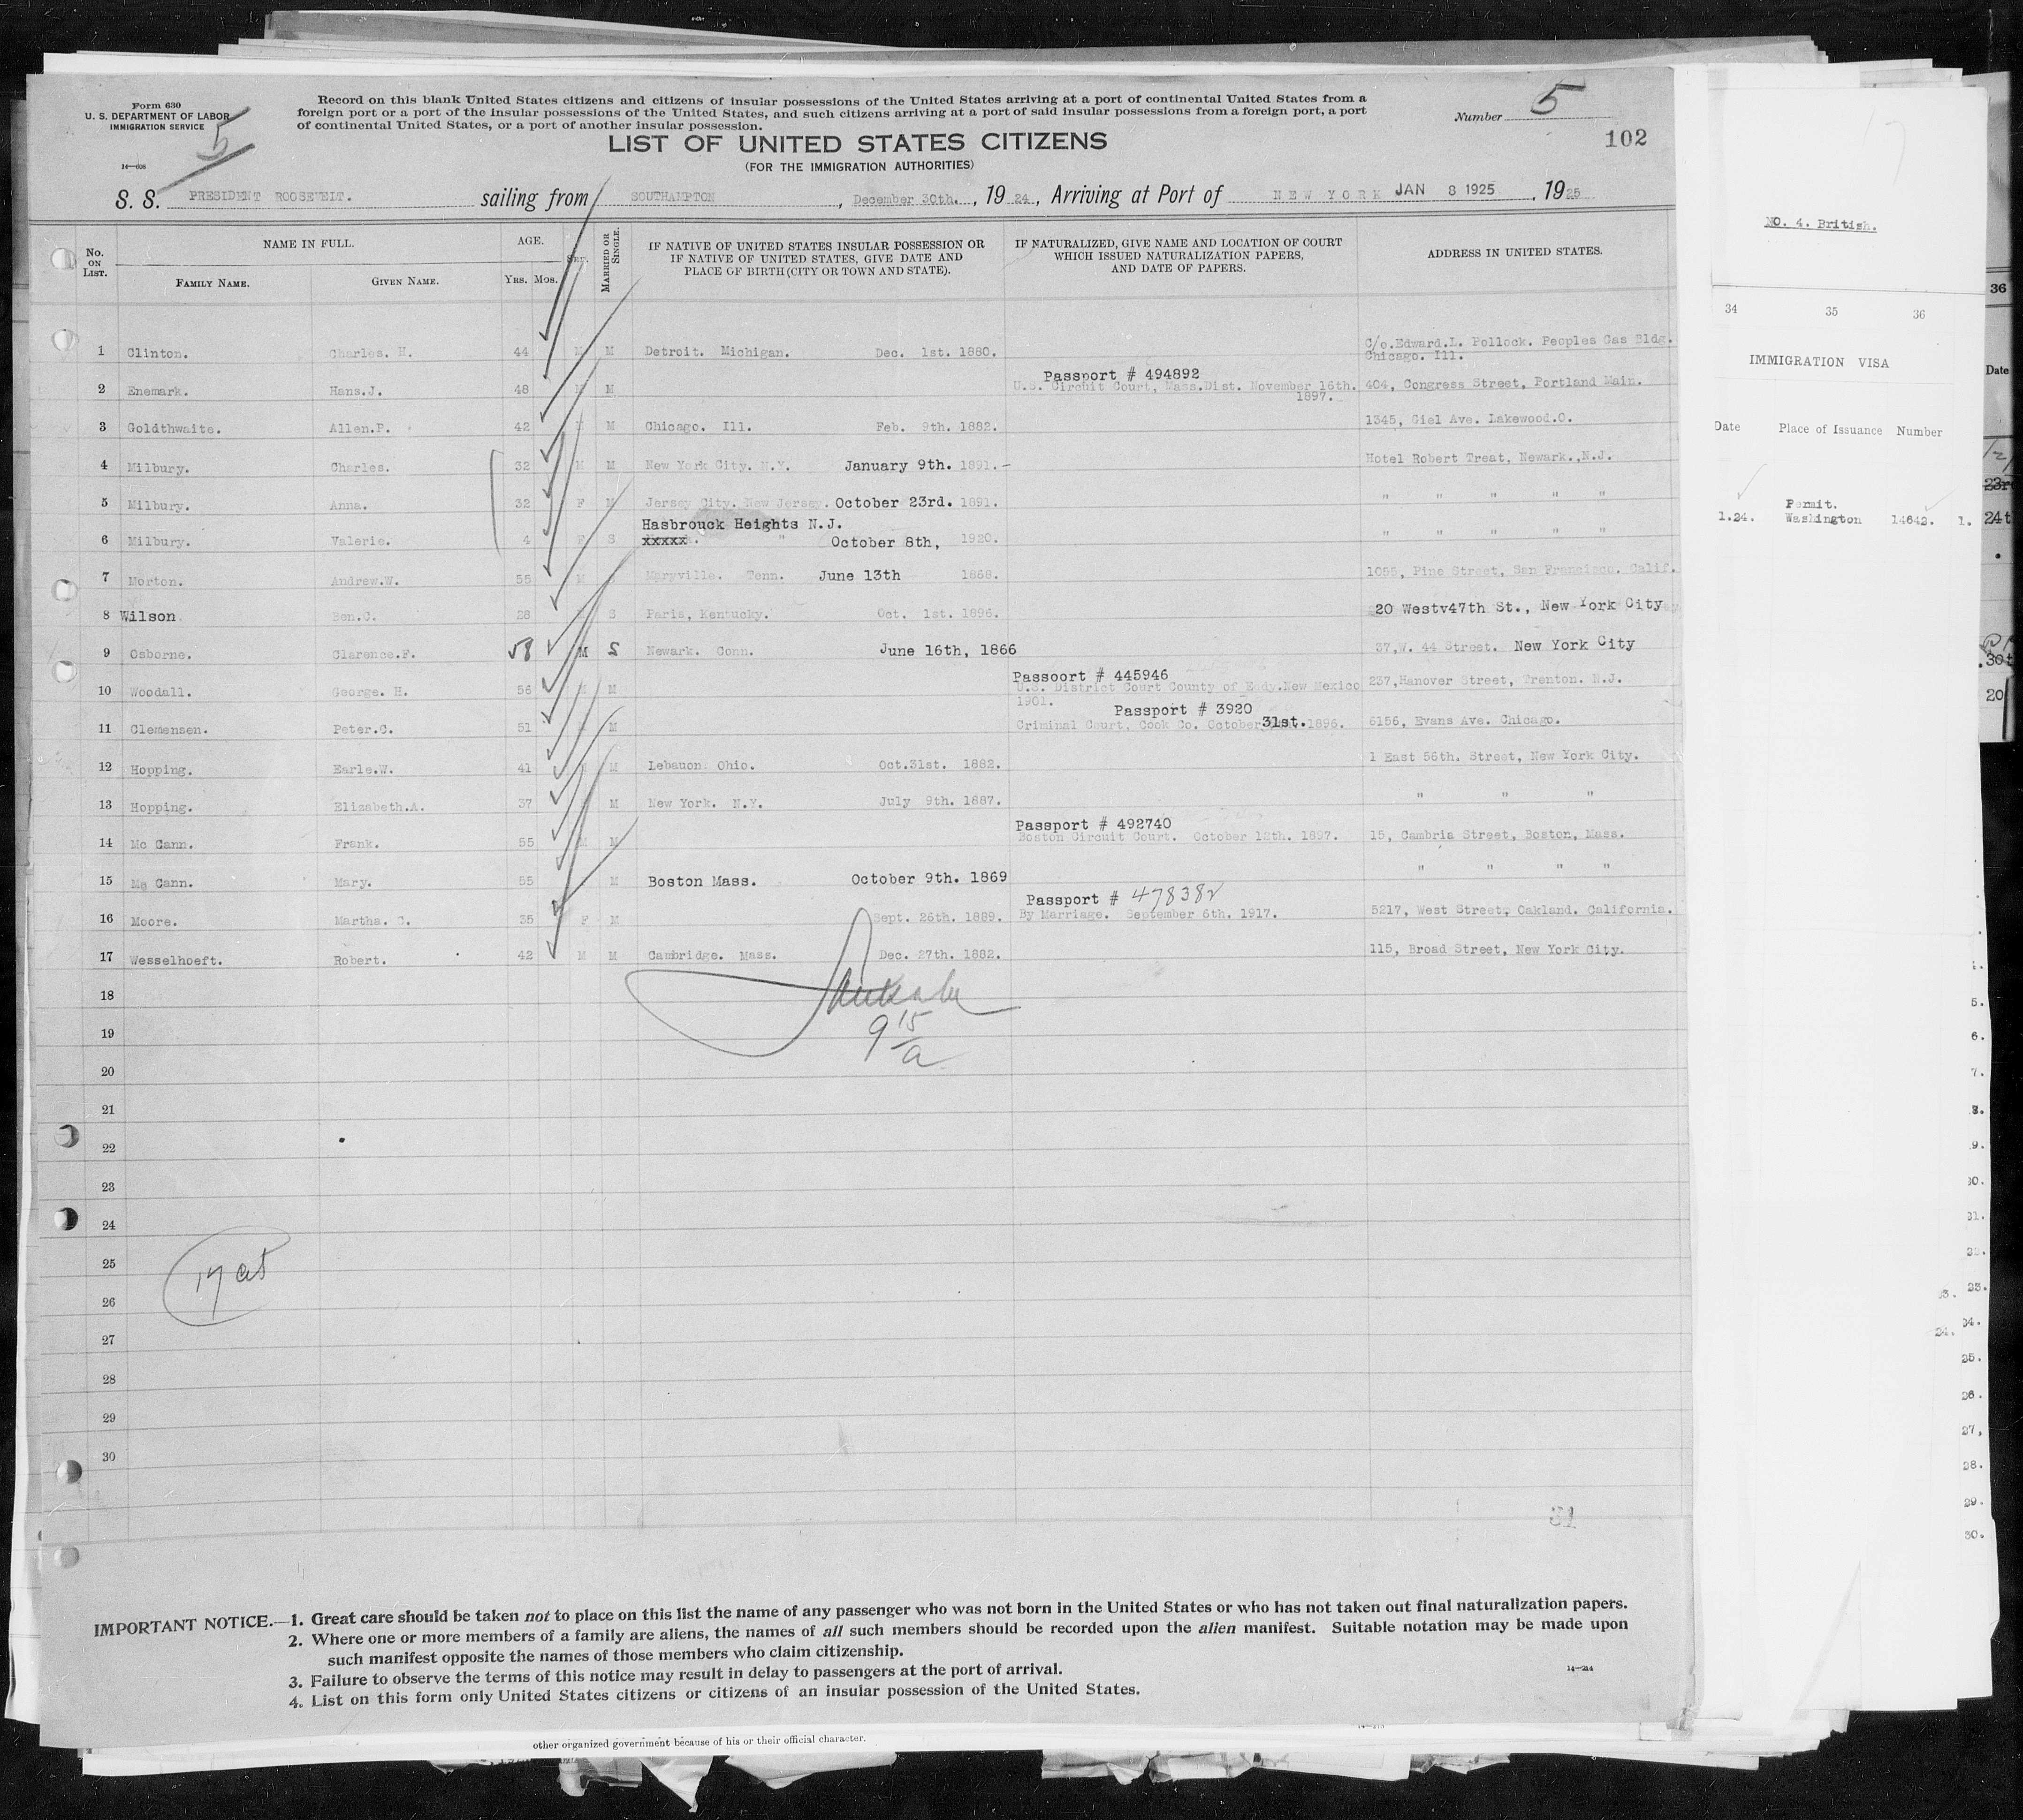 Form 630
U. S. DEPARTMENT OF LABOR
IMMIGRATION SERVICE
14—608
5
Record on this blank United States citizens and citizens of insular possessions of the United States arriving at a port of continental United States from a
foreign port or a port of the insular possessions of the United States, and such citizens arriving at a port of said insular possessions from a foreign port, a port
of continental United States, or a port of another insular possession.
Number 5
102
LIST OF UNITED STATES CITIZENS
(FOR THE IMMIGRATION AUTHORITIES)
S. S. PRESIDENT ROOSEVELT. sailing from SOUTHAMPTON, December 30th., 1924, Arriving at Port of NEW YORK JAN 8 1925, 1925
No. ON LIST. NAME IN FULL. AGE. SEX. MARRIED OR SINGLE. IF NATIVE OF UNITED STATES INSULAR POSSESSION OR IF NATIVE OF UNITED STATES, GIVE DATE AND PLACE OF BIRTH (CITY OR TOWN AND STATE). IF NATURALIZED, GIVE NAME AND LOCATION OF COURT WHICH ISSUED NATURALIZATION PAPERS, AND DATE OF PAPERS. ADDRESS IN UNITED STATES.
FAMILY NAME. GIVEN NAME. YRS. MOS.
1 Clinton. Charles. H. 44 M M Detroit. Michigan. Dec. 1st. 1880. C/o.Edward.L. Pollock. Peoples Gas Bldg.
Chicago. Ill.
Passport # 494892
2 Enemark. Hans.J. 48 M M U.S. Circuit Court, Mass.Dist. November 16th. 404, Congress Street, Portland Main.
1897.
3 Goldthwaite. Allen.P. 42 M M Chicago. Ill. Feb. 9th. 1882. 1345, Giel Ave. Lakewood.O.
4 Milbury. Charles. 32 M M New York City. N.Y. January 9th. 1891.- Hotel Robert Treat, Newark.,N.J.
5 Milbury. Anna. 32 F M Jersey City. New Jersey. October 23rd. 1891. " " " " "
Hasbrouck Heights N.J.
6 Milbury. Valerie. 4 F S xxxxx. " October 8th, 1920. " " " " "
7 Morton. Andrew.W. 55 M Maryville. Tenn. June 13th 1868. 1055, Pine Street, San Francisco. Calif.
8 Wilson Ben.C. 28 S Paris, Kentucky. Oct. 1st. 1896. 20 Westv47th St., New York City
9 Osborne. Clarence.F. 58 M S Newark. Conn. June 16th, 1866 37,W. 44 Street. New York City
Passoort # 445946
10 Woodall. George. H. 56 M M U.S. District Court County of Eddy.New Mexico 237,Hanover Street, Trenton. N.J.
1901.
Passport # 3920
11 Clemensen. Peter.C. 51 M Criminal Court, Cook Co. October 31st. 1896. 6156, Evans Ave. Chicago.
12 Hopping. Earle.W. 41 M Lebauon. Ohio. Oct.31st. 1882. 1 East 56th. Street, New York City.
13 Hopping. Elisabeth.A. 37 M New York. N.Y. July 9th. 1887. " " "
Passport # 492740
14 Mc Cann. Frank. 55 M M Boston Circuit Court. October 12th. 1897. 15, Cambria Street, Boston, Mass.
15 Mc Cann. Mary. 55 M Boston Mass. October 9th. 1869 " " " "
Passport # 478382
16 Moore. Martha. C. 35 F M Sept. 26th. 1889. By Marriage. September 6th. 1917. 5217, West Street, Oakland. California.
17 Wesselhoeft. Robert. 42 M M Cambridge. Mass. Dec. 27th. 1882. 115, Broad Street, New York City.
18
19
9 15/a
20
21
22
23
24
25
26
27
28
29
30
31
IMPORTANT NOTICE.—1. Great care should be taken not to place on this list the name of any passenger who was not born in the United States or who has not taken out final naturalization papers.
2. Where one or more members of a family are aliens, the names of all such members should be recorded upon the alien manifest. Suitable notation may be made upon
such manifest opposite the names of those members who claim citizenship.
3. Failure to observe the terms of this notice may result in delay to passengers at the port of arrival.
4. List on this form only United States citizens or citizens of an insular possession of the United States.
14—214
other organized government because of his or their official character.
NO. 4. British.
34 35 36
IMMIGRATION VISA
Date Place of Issuance Number
Permit.
1.24. Washington 14642. 1.
36
Date
23r
24t
30t
20